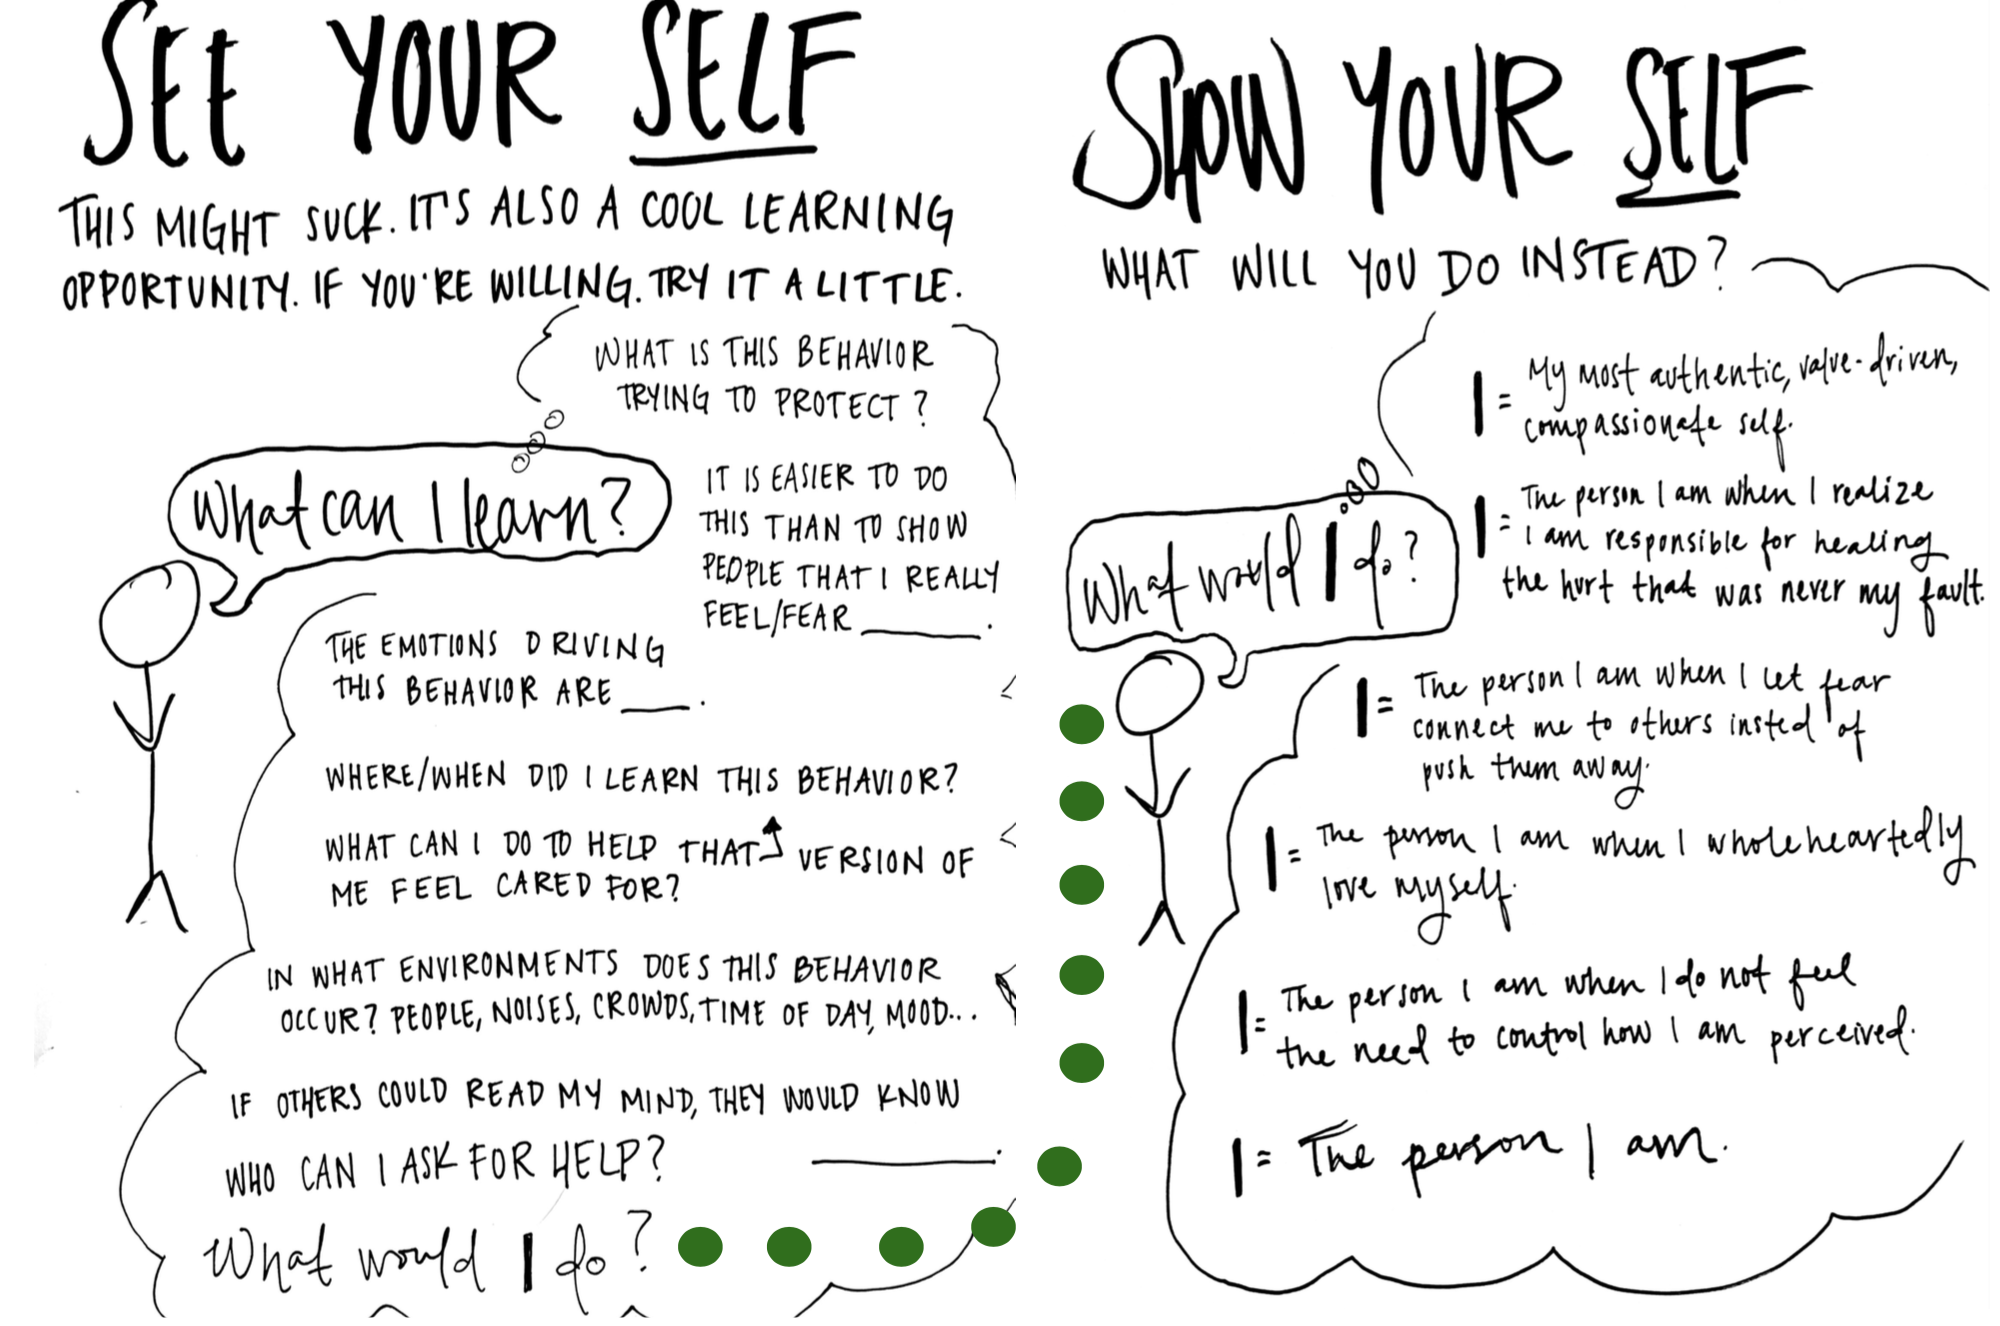 SEE YOUR SELF
THIS MIGHT SUCK. IT'S ALSO A COOL LEARNING
OPPORTUNITY. IF YOU'RE WILLING. TRY IT A LITTLE.
WHAT IS THIS BEHAVIOR
TRYING TO PROTECT?
What can I learn?
IT IS EASIER TO DO
THIS THAN TO SHOW
PEOPLE THAT I REALLY
FEEL/FEAR ______.
THE EMOTIONS DRIVING
THIS BEHAVIOR ARE ____.
WHERE/WHEN DID I LEARN THIS BEHAVIOR?
WHAT CAN I DO TO HELP THAT VERSION OF
ME FEEL CARED FOR?
IN WHAT ENVIRONMENTS DOES THIS BEHAVIOR
OCCUR? PEOPLE, NOISES, CROWDS, TIME OF DAY, MOOD...
IF OTHERS COULD READ MY MIND, THEY WOULD KNOW
______.
WHO CAN I ASK FOR HELP?
What would I do?
SHOW YOUR SELF
WHAT WILL YOU DO INSTEAD?
I = My most authentic, value-driven,
compassionate self.
What would I do?
I = The person I am when I realize
I am responsible for healing
the hurt that was never my fault.
I = The person I am when I let fear
connect me to others insted of
push them away.
I = The person I am when I wholeheartedly
love myself.
I = The person I am when I do not feel
the need to control how I am perceived.
I = The person I am.